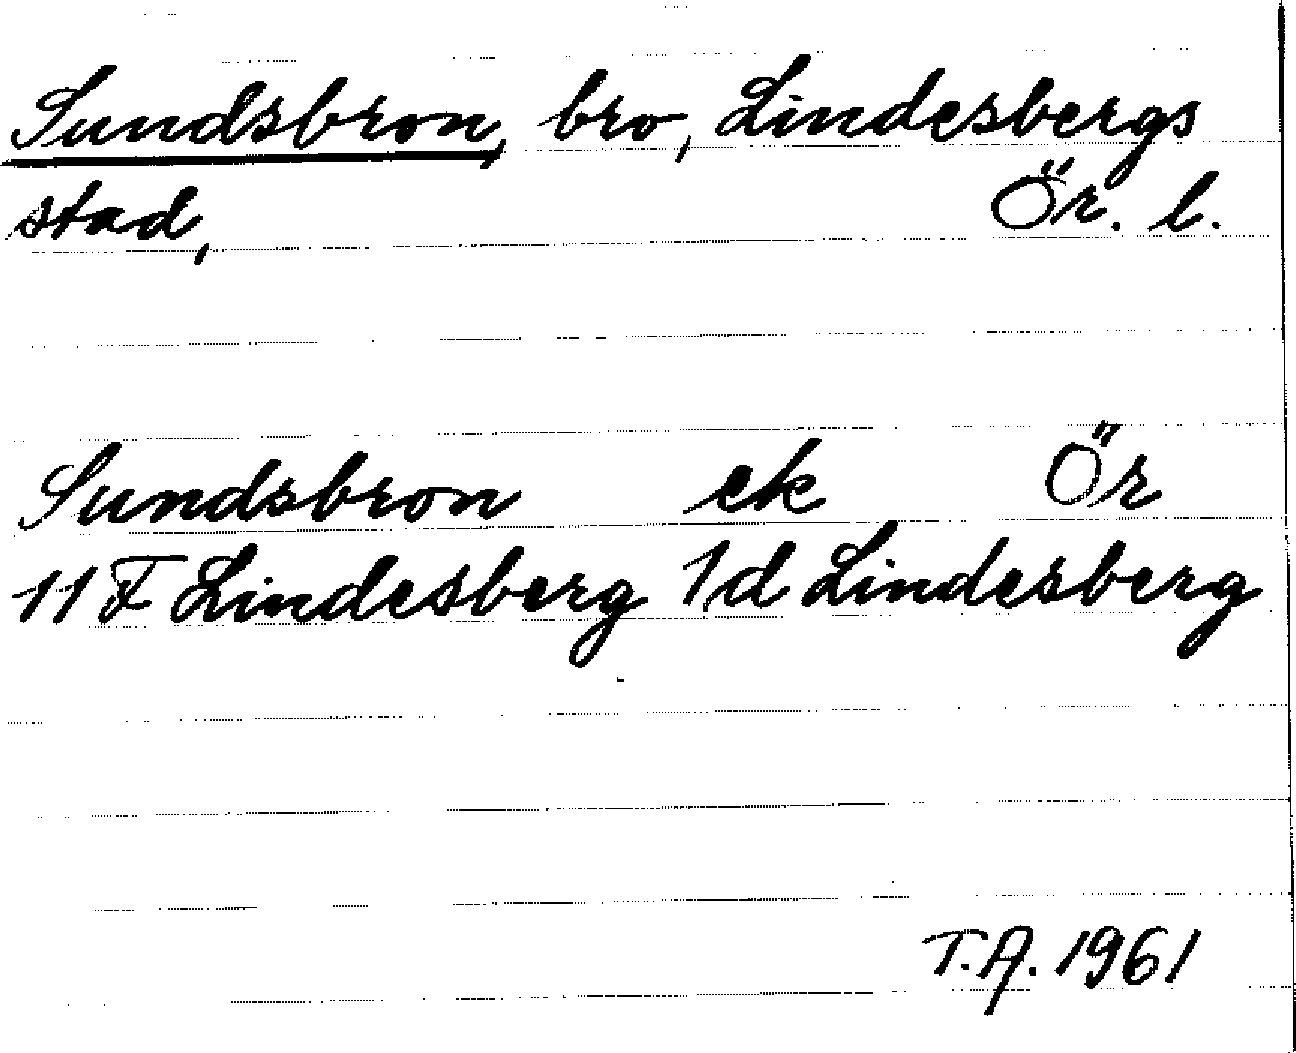 Sundsbron, bro, Lindesbergs
stad, Ör. l.
Sundsbron ek Ör
11F Lindesberg 1d Lindesberg
T.A. 1961